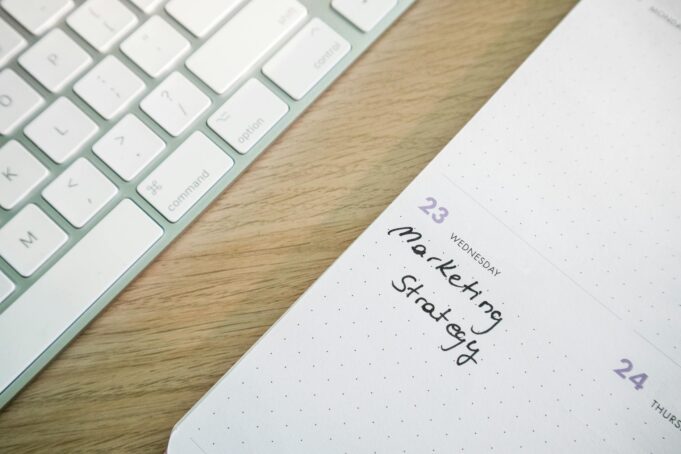 shift
control
option
command
?
/
>
.
<
,
P
O
L
K
M
:
;
⌘
MONDAY
23
WEDNESDAY
Marketing
Strategy
24
THURS